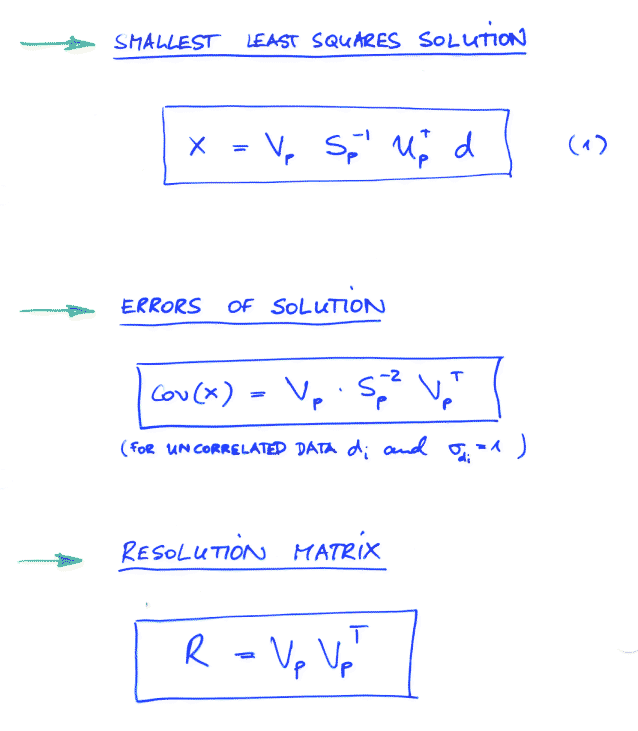 SMALLEST LEAST SQUARES SOLUTION
X = Vₚ Sₚ⁻¹ Uₚᵀ d (1)
ERRORS OF SOLUTION
Cov(x) = Vₚ · Sₚ⁻² Vₚᵀ
(FOR UNCORRELATED DATA dᵢ and σ_dᵢ = 1)
RESOLUTION MATRIX
R = Vₚ Vₚᵀ